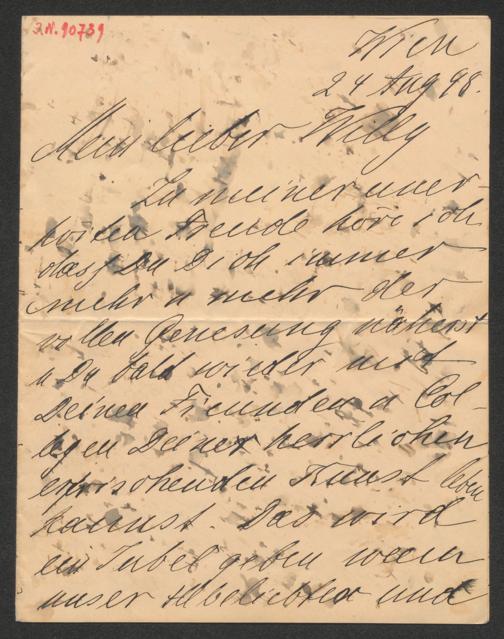 J.N. 90739
Wien
24 Aug 98.
Mein lieber Willy
Zu meiner uner-
hörten Freude höre ich
dass Du Dich immer
mehr u mehr der
vollen Genesung näherst
u Du bald wieder mit
Deinen Freunden u Col-
legen Deiner herrlichen
erfrischenden Kunst leben
kannst. Das wird
ein Jubel geben wenn
unser allbeliebter und